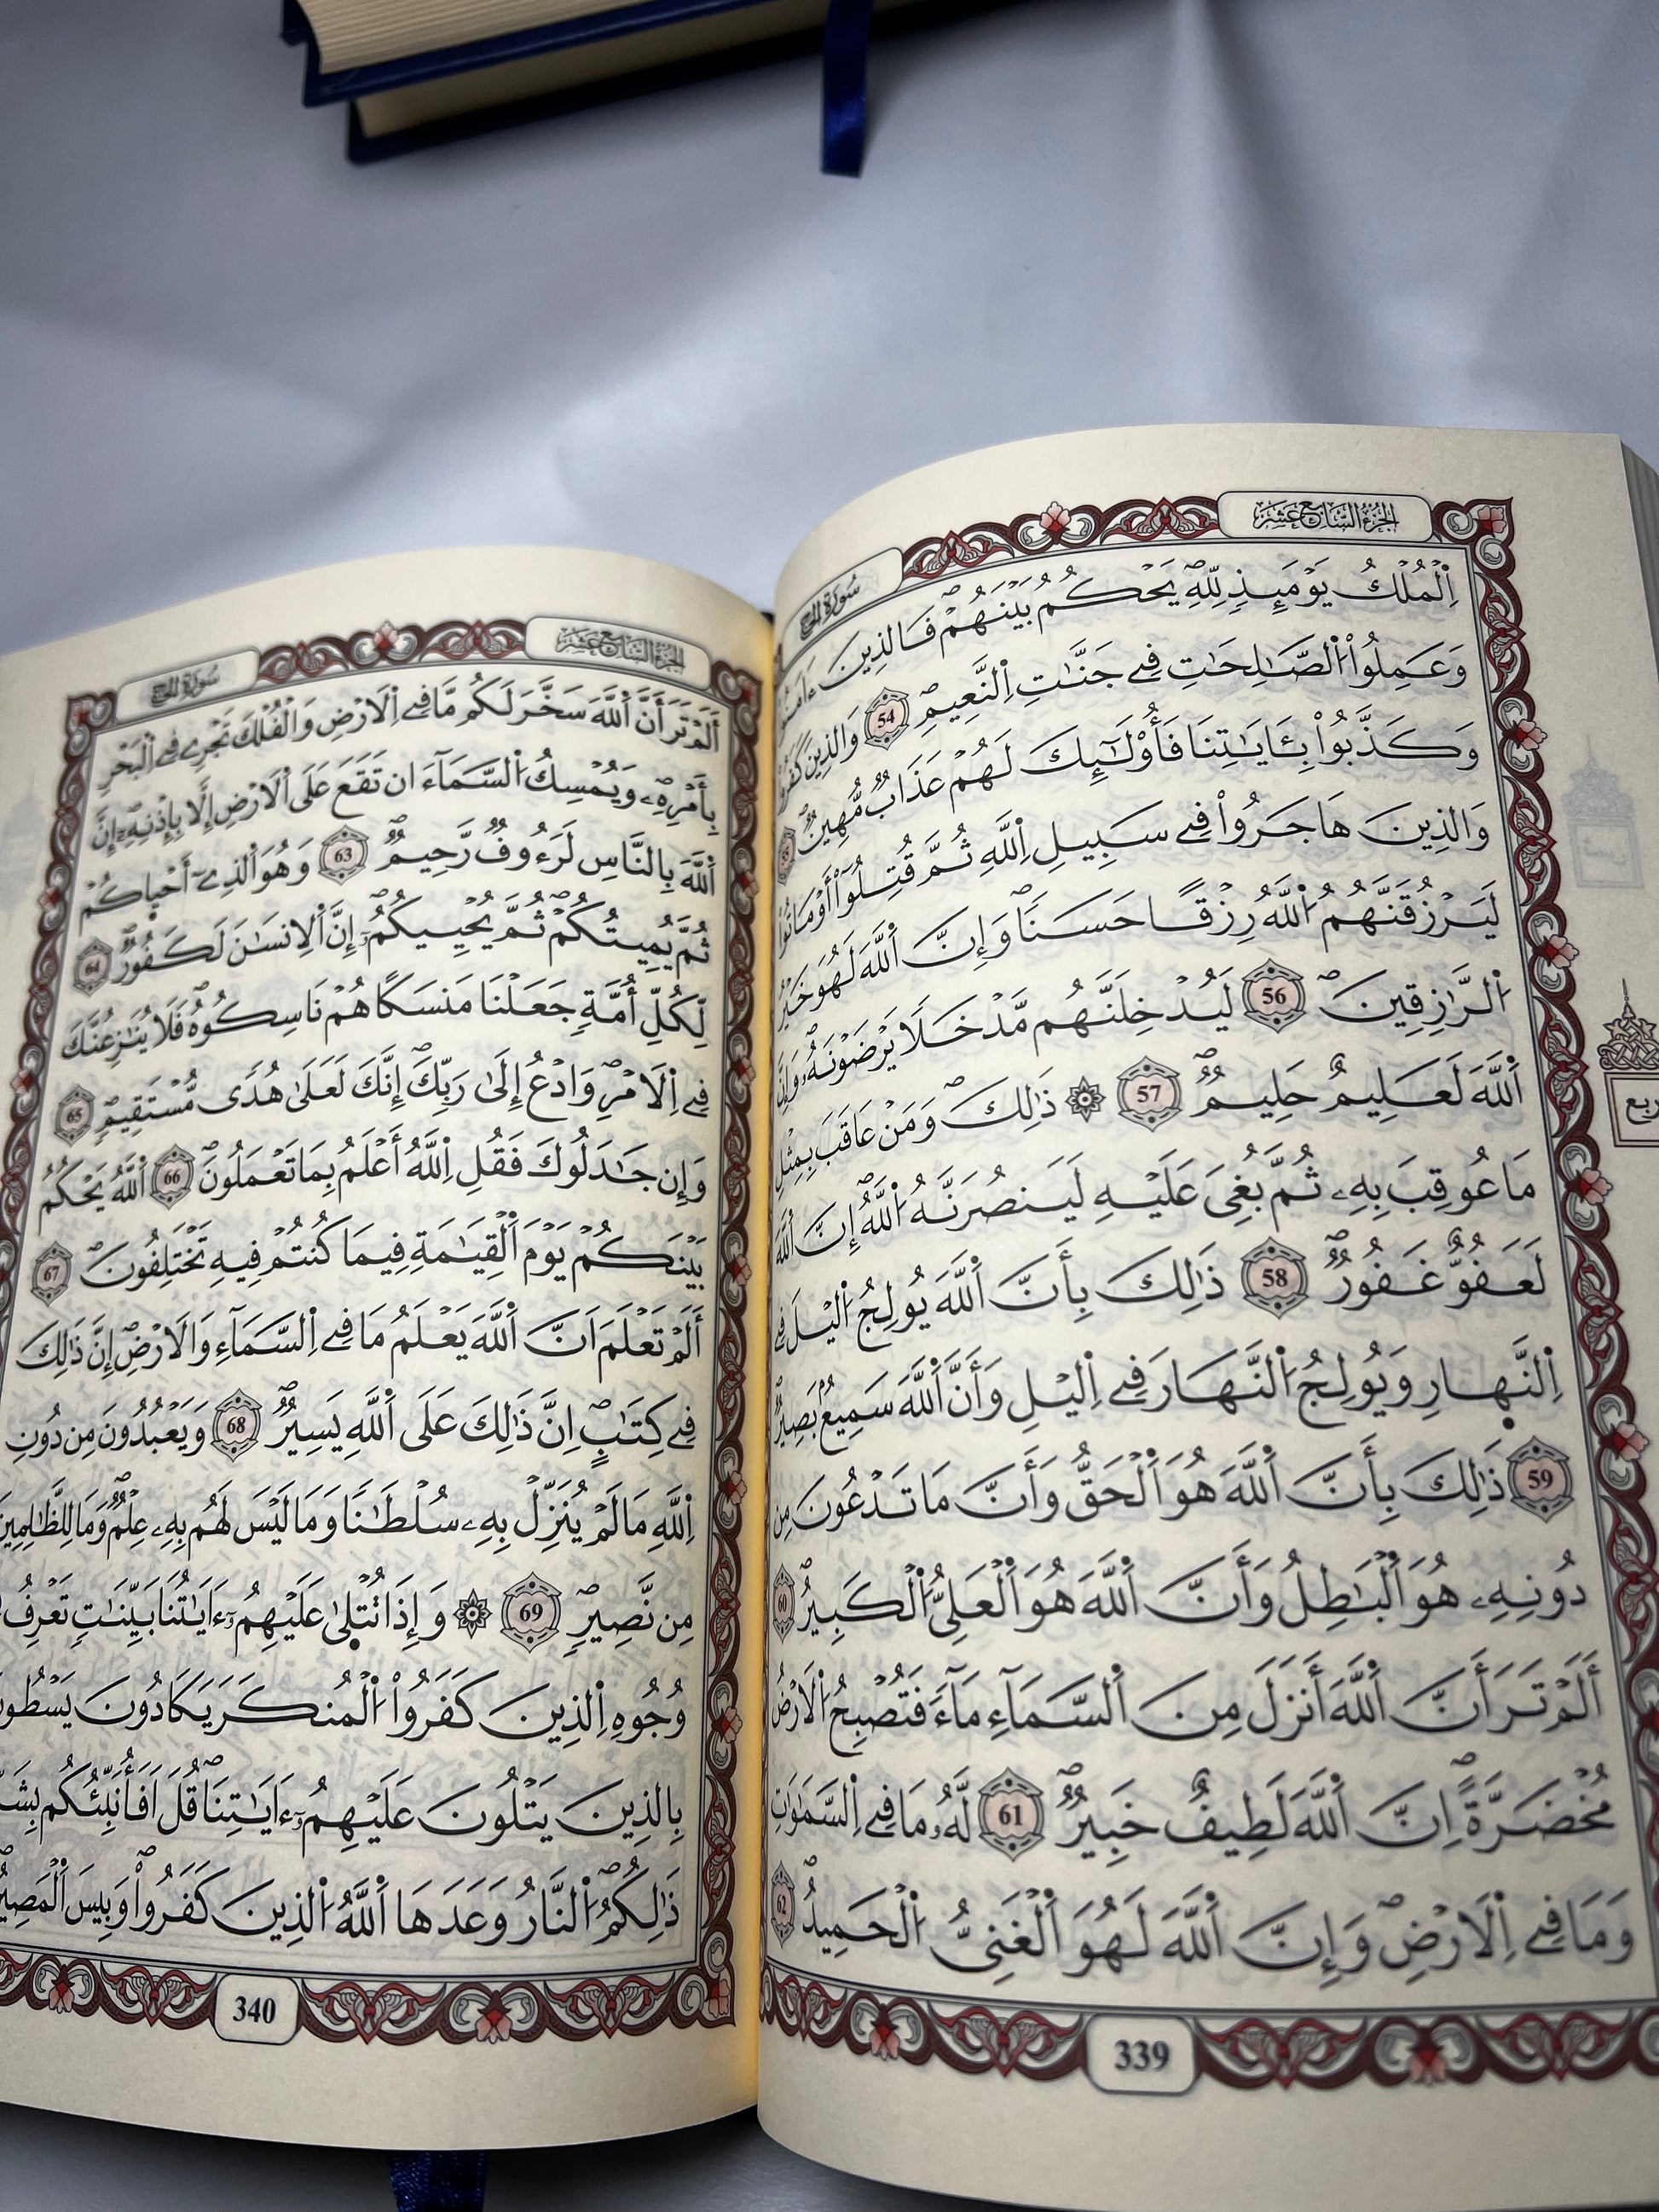 الجزء السابع عشر
سورة الحج
اِ۬لْمُلْكُ يَوْمَئِذٍ لِّلهِۖ يَحْكُمُ بَيْنَهُمْۖ فَالذِينَ ءَامَنُواْ
وَعَمِلُواْ اُ۬لصَّٰلِحَٰتِ فِے جَنَّٰتِ اِ۬لنَّعِيمِۖ 54 وَالذِينَ كَفَرُواْ
وَكَذَّبُواْ بِـَٔايَٰتِنَا فَأُوْلَٰٓئِكَ لَهُمْ عَذَابٌ مُّهِينٌۖ 55
وَالذِينَ هَاجَرُواْ فِے سَبِيلِ اِ۬للَّهِ ثُمَّ قُتِلُوٓاْ أَوْ مَاتُواْ
لَيَرْزُقَنَّهُمُ اُ۬للَّهُ رِزْقًا حَسَنًاۖ وَإِنَّ اَ۬للَّهَ لَهُوَ خَيْرُ
اُ۬لرَّٰزِقِينَۖ 56 لَيُدْخِلَنَّهُم مَّدْخَلًا يَرْضَوْنَهُۥۖ وَإِنَّ
اَ۬للَّهَ لَعَلِيمٌ حَلِيمٌۖ 57 ۞ ذَٰلِكَۖ وَمَنْ عَاقَبَ بِمِثْلِ
مَا عُوقِبَ بِهِۦ ثُمَّ بُغِيَ عَلَيْهِ لَيَنصُرَنَّهُ اُ۬للَّهُۖ إِنَّ اَ۬للَّهَ
لَعَفُوٌّ غَفُورٌۖ 58 ذَٰلِكَ بِأَنَّ اَ۬للَّهَ يُولِجُ اُ۬ليْلَ فِے
اِ۬لنَّهارِ وَيُولِجُ اُ۬لنَّهَارَ فِے اِ۬ليْلِ وَأَنَّ اَ۬للَّهَ سَمِيعٌۢ بَصِيرٌۖ
59 ذَٰلِكَ بِأَنَّ اَ۬للَّهَ هُوَ اَ۬لْحَقُّ وَأَنَّ مَا تَدْعُونَ مِن
دُونِهِۦ هُوَ اَ۬لْبَٰطِلُ وَأَنَّ اَ۬للَّهَ هُوَ اَ۬لْعَلِيُّ اُ۬لْكَبِيرُۖ 60
أَلَمْ تَرَ أَنَّ اَ۬للَّهَ أَنزَلَ مِنَ اَ۬لسَّمَآءِ مَآءً فَتُصْبِحُ اُ۬لَارْضُ
مُخْضَرَّةًۖ اِنَّ اَ۬للَّهَ لَطِيفٌ خَبِيرٌۖ 61 لَّهُۥ مَا فِے اِ۬لسَّمَٰوَٰتِ
وَمَا فِے اِ۬لَارْضِۖ وَإِنَّ اَ۬للَّهَ لَهُوَ اَ۬لْغَنِيُّ اُ۬لْحَمِيدُۖ 62
339
ربع
الجزء السابع عشر
سورة الحج
أَلَمْ تَرَ أَنَّ اَ۬للَّهَ سَخَّرَ لَكُم مَّا فِے اِ۬لَارْضِ وَالْفُلْكَ تَجْرِے فِے اِ۬لْبَحْرِ
بِأَمْرِهِۦۖ وَيُمْسِكُ اُ۬لسَّمَآءَ ان تَقَعَ عَلَى اَ۬لَارْضِ إِلَّا بِإِذْنِهِۦٓۖ إِنَّ
اَ۬للَّهَ بِالنَّاسِ لَرَءُوفٌ رَّحِيمٌۖ 63 وَهُوَ اَ۬لذِےٓ أَحْياكُمْ
ثُمَّ يُمِيتُكُمْۖ ثُمَّ يُحْيِيكُمُۥٓۖ إِنَّ اَ۬لِانسَٰنَ لَكَفُورٌۖ 64
لِّكُلِّ أُمَّةٍ جَعَلْنَا مَنسَكًا هُمْ نَاسِكُوهُۖ فَلَا يُنَٰزِعُنَّكَ
فِے اِ۬لَامْرِۖ وَادْعُ إِلَىٰ رَبِّكَۖ إِنَّكَ لَعَلَىٰ هُدًى مُّسْتَقِيمٍۖ 65
وَإِن جَٰدَلُوكَ فَقُلِ اِ۬للَّهُ أَعْلَمُ بِمَا تَعْمَلُونَۖ 66 اَ۬للَّهُ يَحْكُمُ
بَيْنَكُمْ يَوْمَ اَ۬لْقِيَٰمَةِ فِيمَا كُنتُمْ فِيهِ تَخْتَلِفُونَۖ 67
أَلَمْ تَعْلَمَ اَنَّ اَ۬للَّهَ يَعْلَمُ مَا فِے اِ۬لسَّمَآءِ وَالَارْضِۖ إِنَّ ذَٰلِكَ
فِے كِتَٰبٍۖ اِنَّ ذَٰلِكَ عَلَى اَ۬للَّهِ يَسِيرٌۖ 68 وَيَعْبُدُونَ مِن دُونِ
اِ۬للَّهِ مَا لَمْ يُنَزِّلْ بِهِۦ سُلْطَٰنًا وَمَا لَيْسَ لَهُم بِهِۦ عِلْمٌۖ وَمَا لِلظَّٰلِمِينَ
مِن نَّصِيرٍۖ 69 ۞ وَإِذَا تُتْلَىٰ عَلَيْهِمُۥٓ ءَايَٰتُنَا بَيِّنَٰتٍ تَعْرِفُ
وُجُوهِ اِ۬لذِينَ كَفَرُواْ اُ۬لْمُنكَرَ يَكَادُونَ يَسْطُونَ
بِالذِينَ يَتْلُونَ عَلَيْهِمُۥٓ ءَايَٰتِنَاۖ قُلَ اَفَأُنَبِّئُكُم
ذَٰلِكُمُۖ اُ۬لنَّارُ وَعَدَهَا اَ۬للَّهُ اُ۬لذِينَ كَفَرُواْۖ وَبِيسَ اَ۬لْمَصِيرُ
340